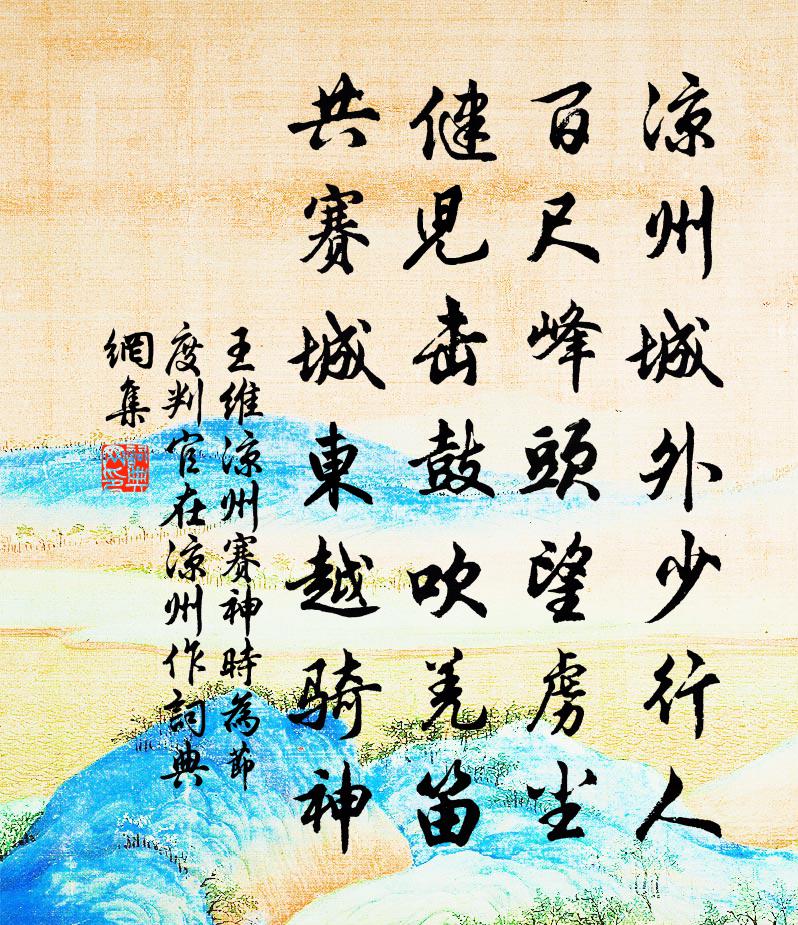 凉州城外少行人
百尺峰頭望虜尘
健児击鼓吹羌笛
共賽城東越騎神
王維凉州賽神時為節
度判官在凉州作詞典
網集